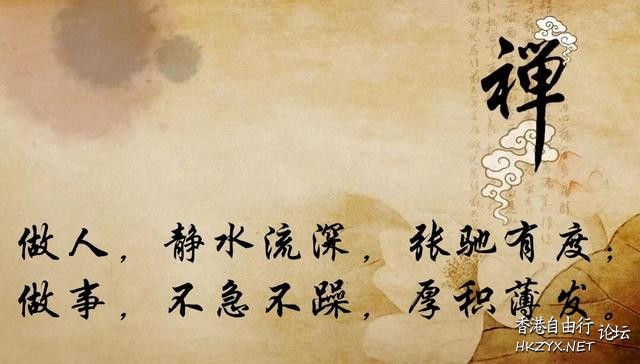 禅
做人，静水流深，张驰有度；
做事，不急不躁，厚积薄发。
香港自由行论坛
HKZYX.NET